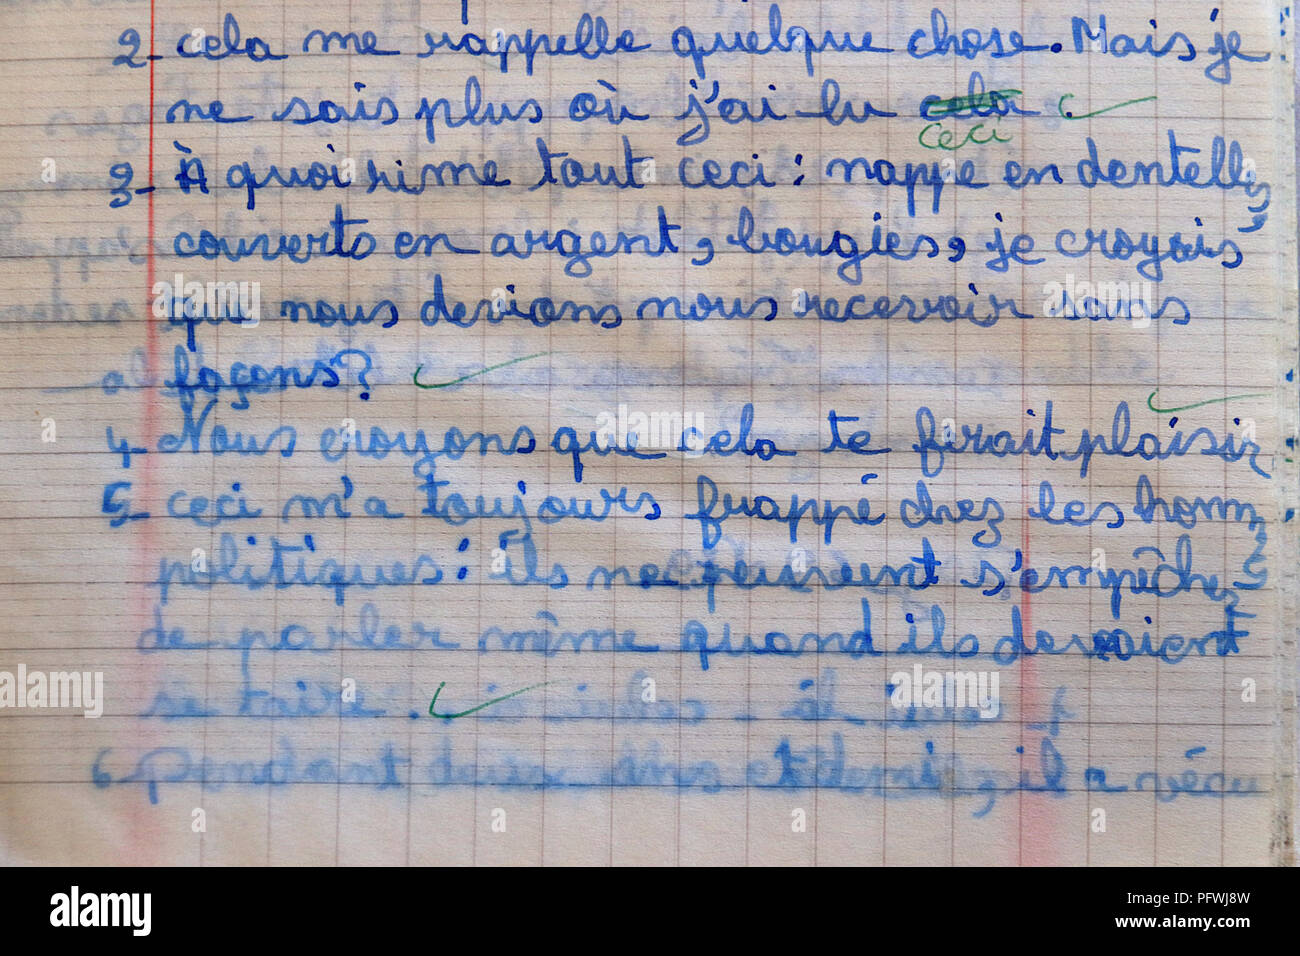 2- cela me rappelle quelque chose. Mais je
ne sais plus où j'ai lu cela .
ceci
3- À quoi rime tout ceci : nappe en dentelle,
couverts en argent, bougies, je croyais
que nous devions nous recevoir sans
façons ?
4- Nous croyons que cela te ferait plaisir
5- ceci m'a toujours frappé chez les hom
politiques : ils ne peuvent s'empêche
de parler même quand ils devraient
se taire .
6- Pendant deux ans et demi, il a vécu
alamy
Image ID: PFWJ8W
www.alamy.com